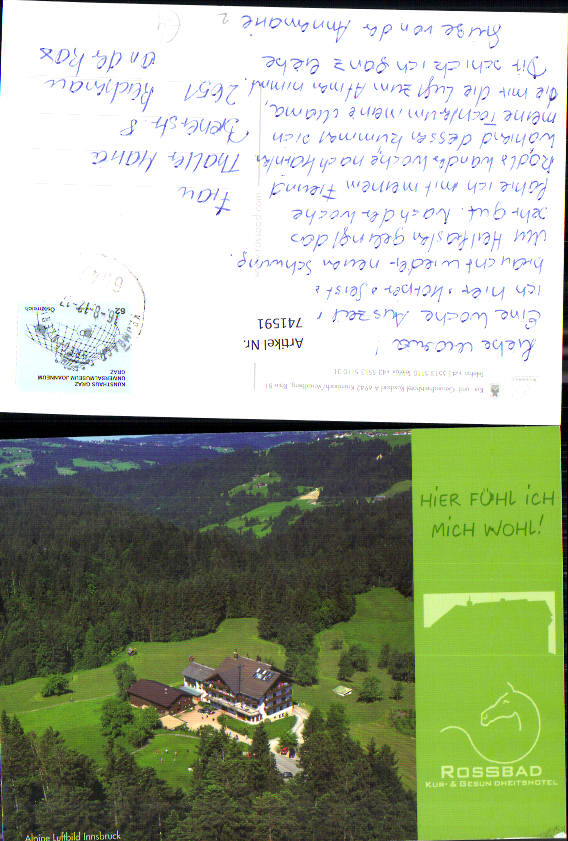 Kur- und Gesundheitshotel Rossbad A-6942 Krumbach/Vorarlberg, Rain 81
Telefon +43 5513 5110 Telefax +43 5513 5110 31
Artikel Nr.
741591
KUNSTHAUS GRAZ
UNIVERSALMUSEUM JOANNEUM
GRAZ
62
Österreich
Liebe Mama!
Eine Woche Auszeit,
ich hier, Körper, Geist,
braucht wieder neuen Schwung.
Mit Heilfasten gelingt das
sehr gut. Nach der Woche
fahre ich mit meinem Freund
Woche nach
dessen kümmert sich
meine Tochter um meine Mama,
die mir die Luft zum Atmen nimmt.
Dir schick ich ganz liebe
Grüße von der Annemarie
Frau
Thaller Maria
8
2651 Reichenau
an der Rax
HIER FÜHL ICH
MICH WOHL!
ROSSBAD
KUR- & GESUNDHEITSHOTEL
Alpine Luftbild Innsbruck